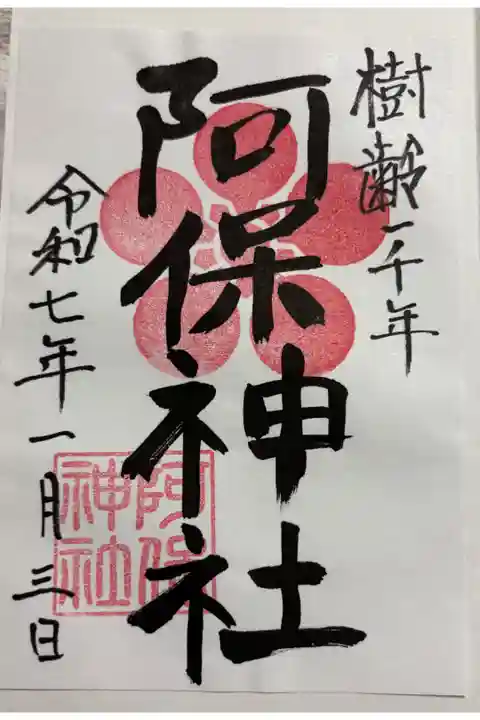 樹齢一千年
阿保神社
令和七年一月三日
阿保
神社